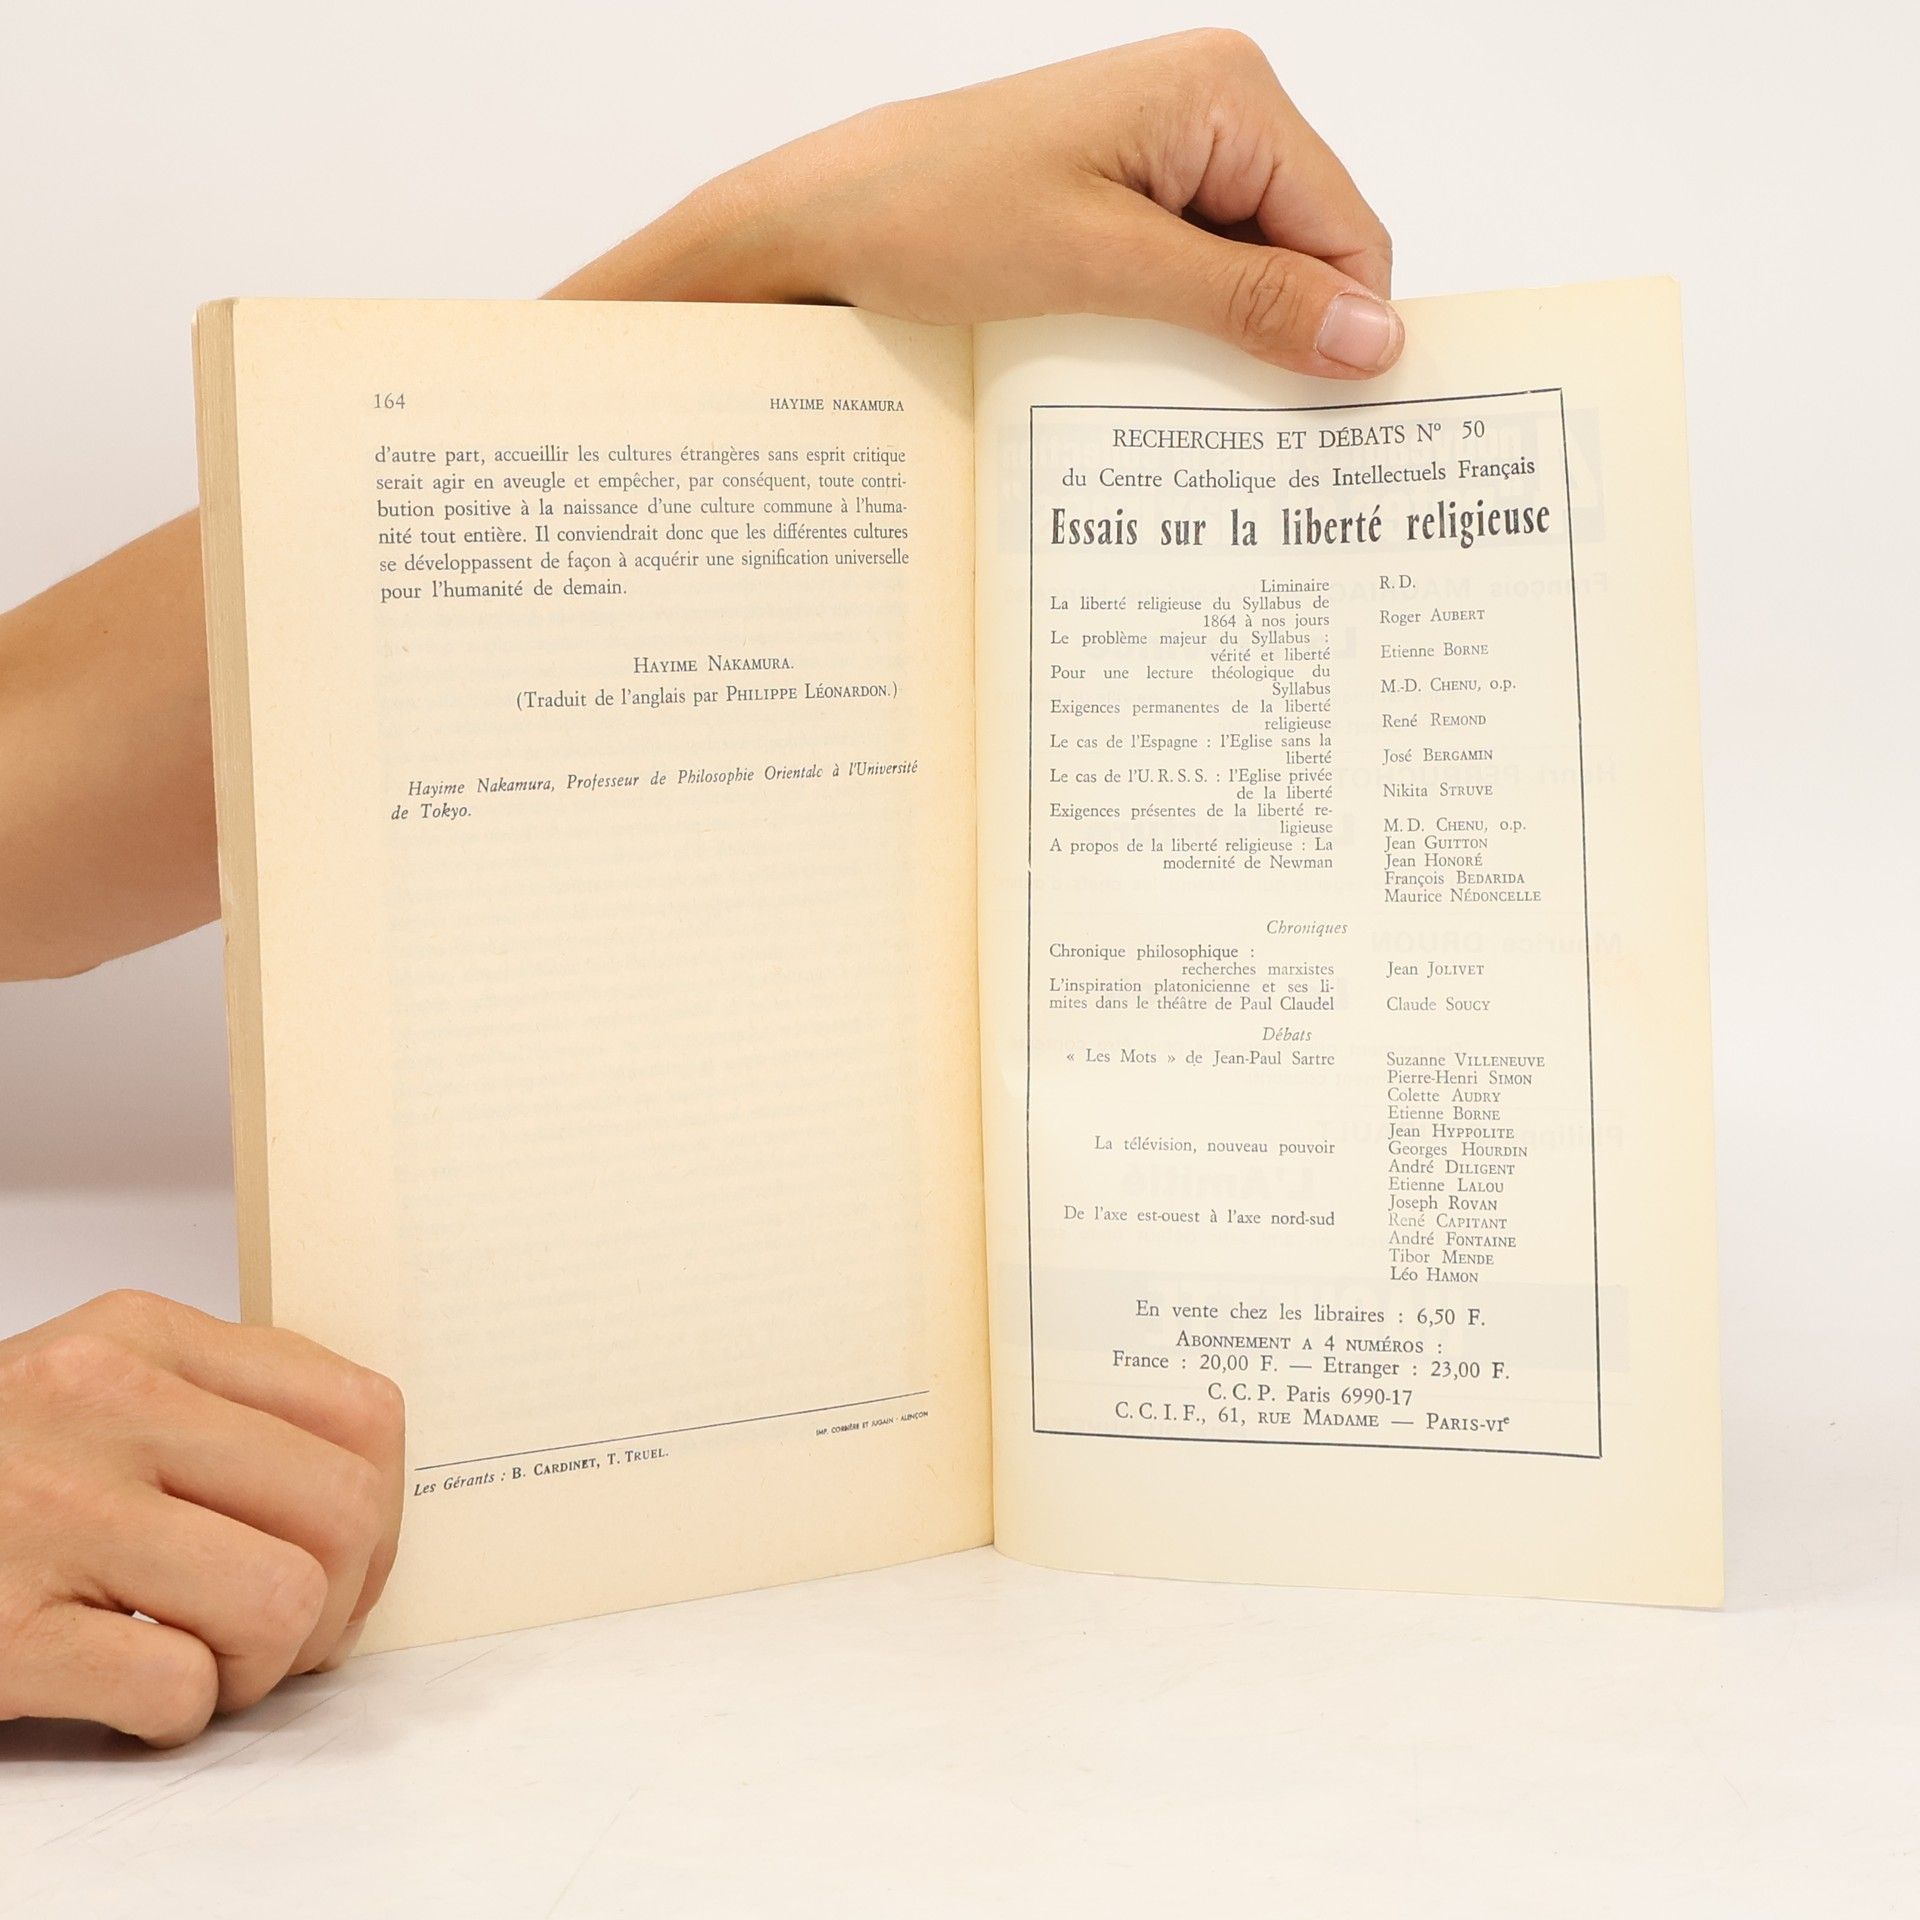 164
HAYIME NAKAMURA
d'autre part, accueillir les cultures étrangères sans esprit critique
serait agir en aveugle et empêcher, par conséquent, toute contri-
bution positive à la naissance d'une culture commune à l'huma-
nité tout entière. Il conviendrait donc que les différentes cultures
se développassent de façon à acquérir une signification universelle
pour l'humanité de demain.
HAYIME NAKAMURA.
(Traduit de l'anglais par PHILIPPE LÉONARDON.)
Hayime Nakamura, Professeur de Philosophie Orientale à l'Université
de Tokyo.
IMP. CORBIÈRE ET JUGAIN - ALENÇON
Les Gérants : B. CARDINET, T. TRUEL.
RECHERCHES ET DÉBATS Nº 50
du Centre Catholique des Intellectuels Français
Essais sur la liberté religieuse
Liminaire R. D.
La liberté religieuse du Syllabus de
1864 à nos jours Roger AUBERT
Le problème majeur du Syllabus :
vérité et liberté Etienne BORNE
Pour une lecture théologique du
Syllabus M.-D. CHENU, o.p.
Exigences permanentes de la liberté
religieuse René REMOND
Le cas de l'Espagne : l'Eglise sans la
liberté José BERGAMIN
Le cas de l'U. R. S. S. : l'Eglise privée
de la liberté Nikita STRUVE
Exigences présentes de la liberté re-
ligieuse M. D. CHENU, o.p.
A propos de la liberté religieuse : La Jean GUITTON
modernité de Newman Jean HONORÉ
François BEDARIDA
Maurice NÉDONCELLE
Chroniques
Chronique philosophique :
recherches marxistes Jean JOLIVET
L'inspiration platonicienne et ses li-
mites dans le théâtre de Paul Claudel Claude SOUCY
Débats
« Les Mots » de Jean-Paul Sartre Suzanne VILLENEUVE
Pierre-Henri SIMON
Colette AUDRY
Etienne BORNE
Jean HYPPOLITE
La télévision, nouveau pouvoir Georges HOURDIN
André DILIGENT
Etienne LALOU
Joseph ROVAN
De l'axe est-ouest à l'axe nord-sud René CAPITANT
André FONTAINE
Tibor MENDE
Léo HAMON
En vente chez les libraires : 6,50 F.
ABONNEMENT A 4 NUMÉROS :
France : 20,00 F. — Etranger : 23,00 F.
C. C. P. Paris 6990-17
C. C. I. F., 61, RUE MADAME — PARIS-VIe